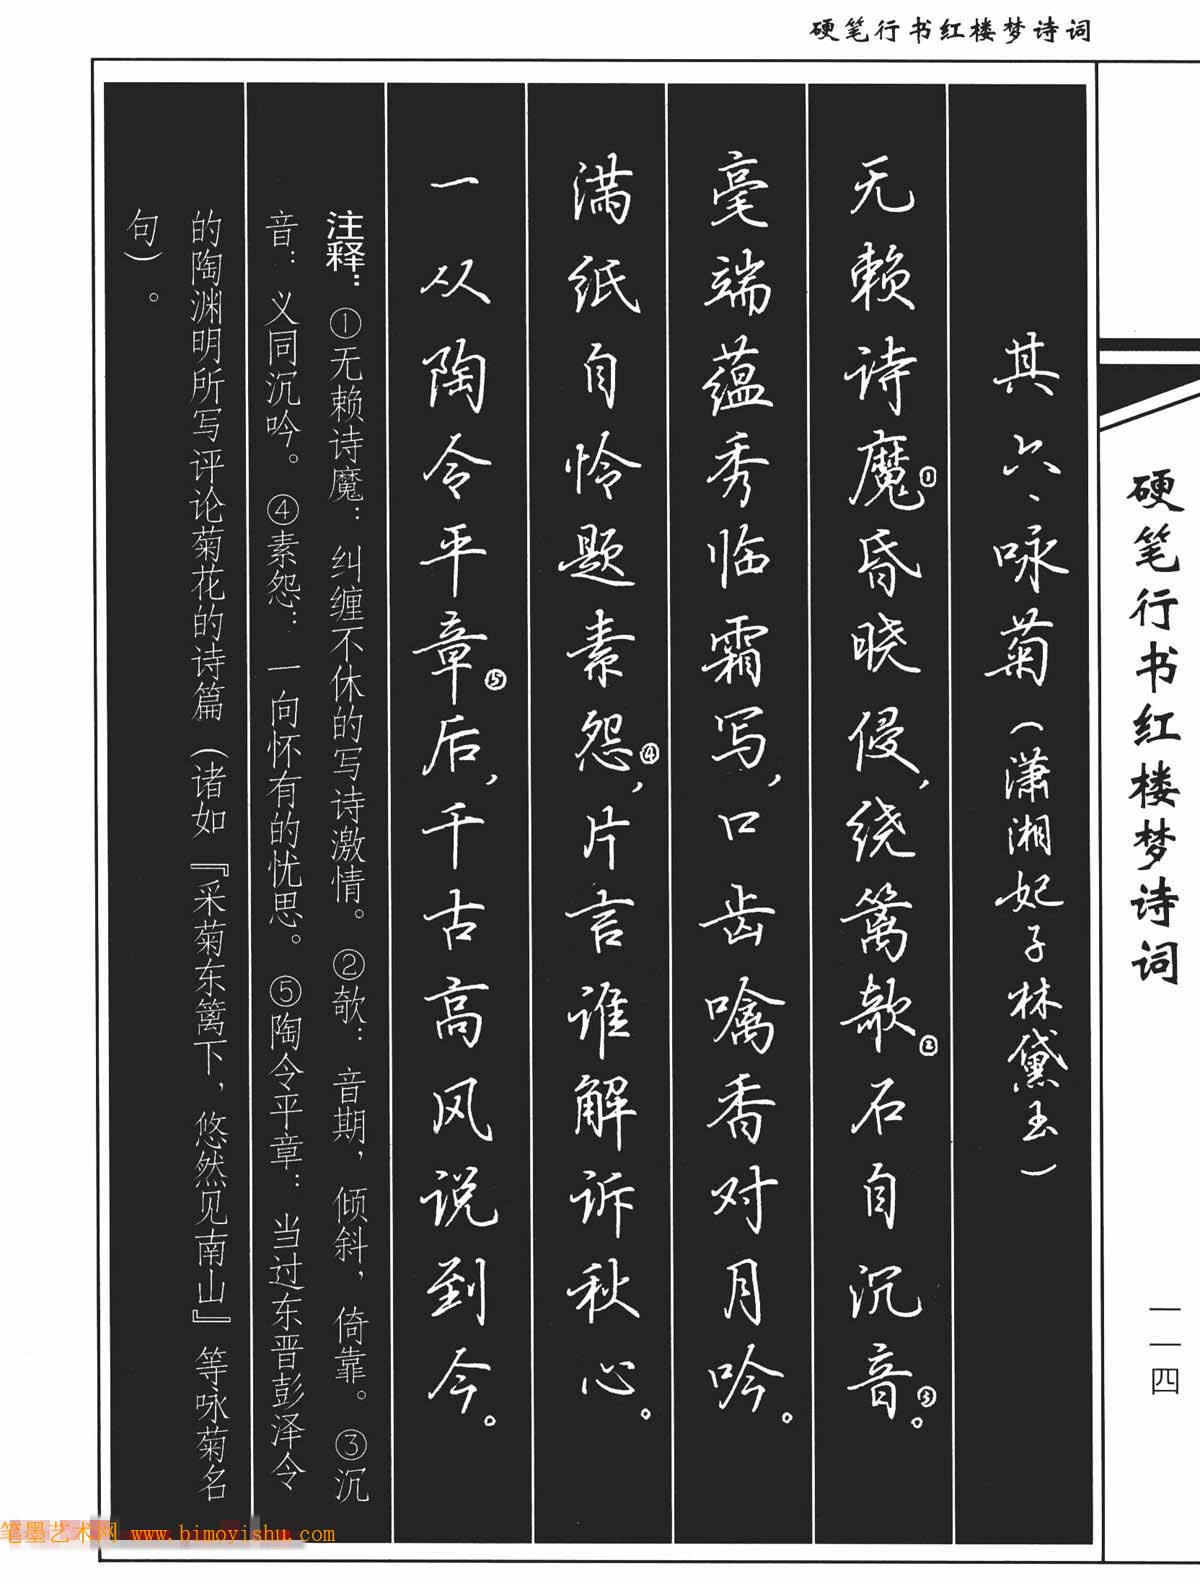 硬笔行书红楼梦诗词
硬笔行书红楼梦诗词
一一四
其六、咏菊（潇湘妃子林黛玉）
无赖诗魔①昏晓侵，绕篱欹②石自沉音③。
毫端蕴秀临霜写，口齿噙香对月吟。
满纸自怜题素怨④，片言谁解诉秋心。
一从陶令平章⑤后，千古高风说到今。
注释：①无赖诗魔：纠缠不休的写诗激情。②欹：音期，倾斜，倚靠。③沉
音：义同沉吟。④素怨：一向怀有的忧思。⑤陶令平章：当过东晋彭泽令
的陶渊明所写评论菊花的诗篇（诸如『采菊东篱下，悠然见南山』等咏菊名
句）。
笔墨艺术网 www.bimoyishu.com